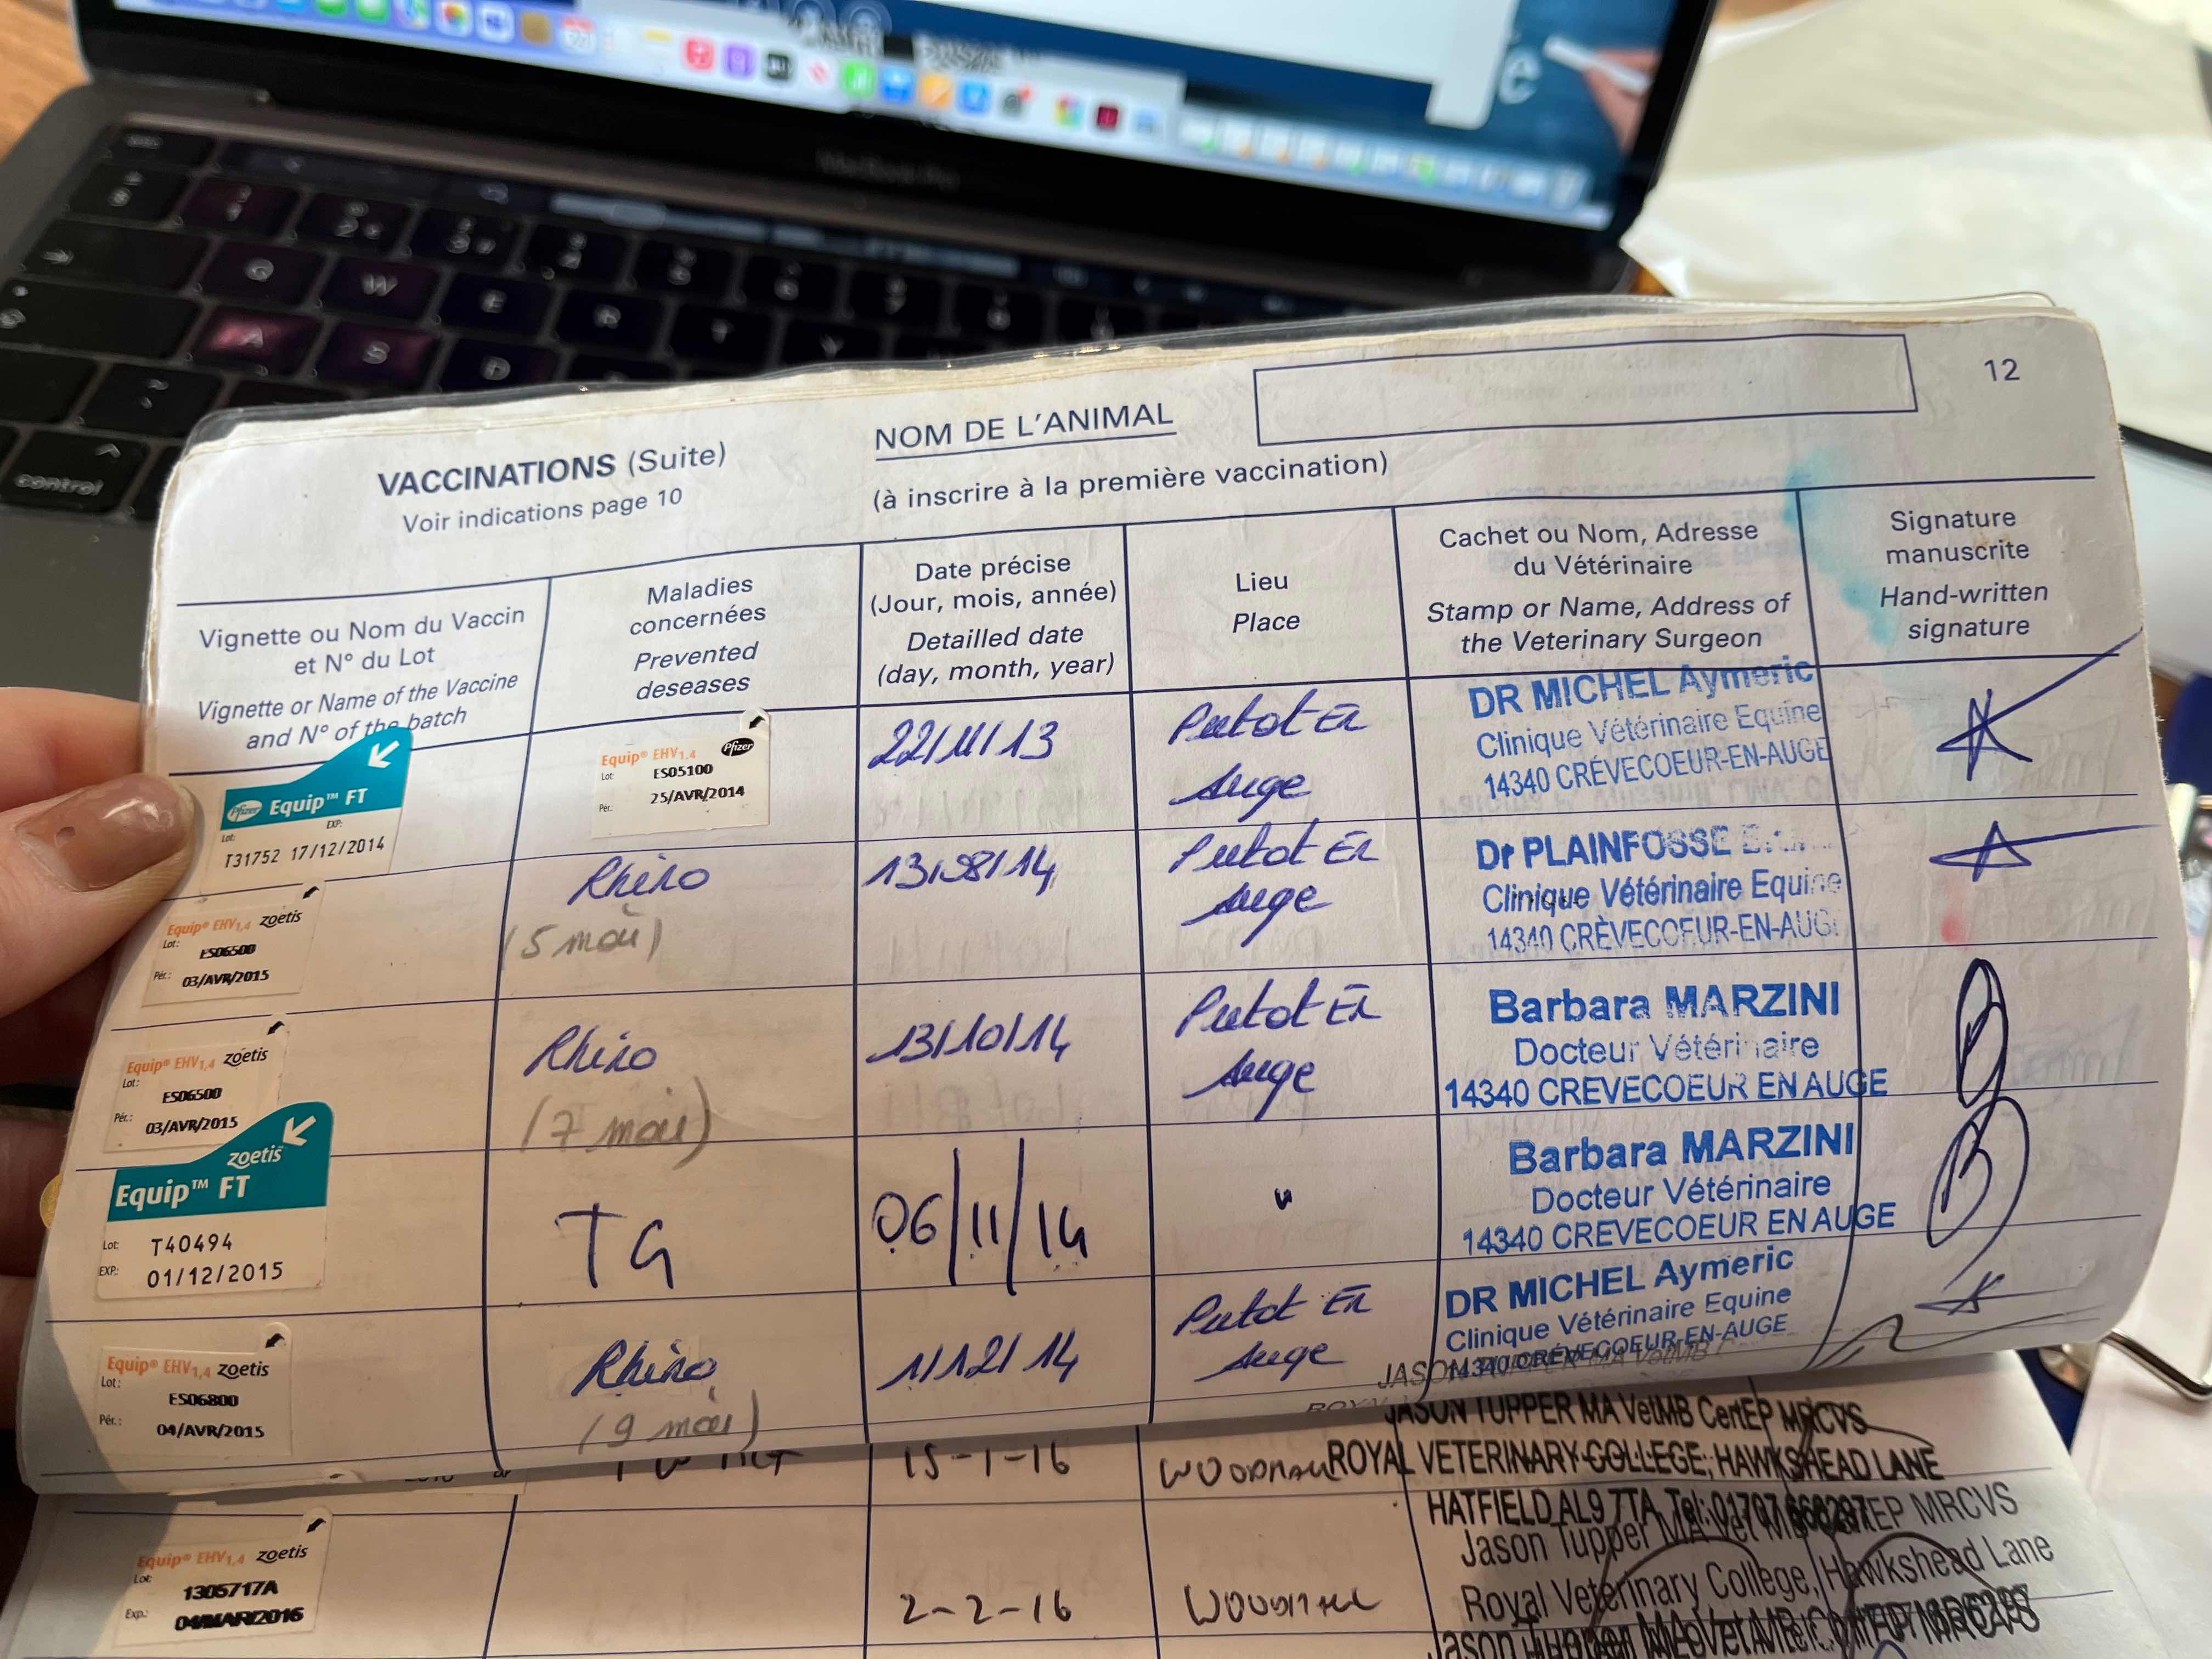 MacBook Pro
Q W E R T Y
A S D
control
12
VACCINATIONS (Suite)
Voir indications page 10
NOM DE L'ANIMAL
(à inscrire à la première vaccination)
Vignette ou Nom du Vaccin
et N° du Lot
Vignette or Name of the Vaccine
and N° of the batch
Maladies
concernées
Prevented
deseases
Date précise
(Jour, mois, année)
Detailled date
(day, month, year)
Lieu
Place
Cachet ou Nom, Adresse
du Vétérinaire
Stamp or Name, Address of
the Veterinary Surgeon
Signature
manuscrite
Hand-written
signature
Pfizer Equip™ FT
Lot: EXP:
T31752 17/12/2014
Equip® EHV1,4 Pfizer
Lot: ES05100
Pér.: 25/AVR/2014
22/11/13
Putot En
Auge
DR MICHEL Aymeric
Clinique Vétérinaire Equine
14340 CRÉVECOEUR-EN-AUGE
Equip® EHV1,4 zoetis
Lot: ES06500
Pér.: 03/AVR/2015
Rhino
(5 mois)
13/08/14
Putot En
Auge
Dr PLAINFOSSE
Clinique Vétérinaire Equine
14340 CRÈVECOEUR-EN-AUGE
Equip® EHV1,4 zoetis
Lot: ES06500
Pér.: 03/AVR/2015
Rhino
(7 mois)
13/10/14
Putot En
Auge
Barbara MARZINI
Docteur Vétérinaire
14340 CREVECOEUR EN AUGE
zoetis
Equip™ FT
Lot: T40494
EXP.: 01/12/2015
TG
06/11/14
"
Barbara MARZINI
Docteur Vétérinaire
14340 CREVECOEUR EN AUGE
Equip® EHV1,4 zoetis
Lot: ES06800
Pér.: 04/AVR/2015
Rhino
(9 mois)
11/12/14
Putot En
Auge
DR MICHEL Aymeric
Clinique Vétérinaire Equine
14340 CRÉVECOEUR-EN-AUGE
JASON TUPPER MA VetMB
15-1-16
JASON TUPPER MA VetMB CertEP MRCVS
ROYAL VETERINARY COLLEGE, HAWKSHEAD LANE
HATFIELD AL9 7TA Tel: 01707 666297
Equip® EHV1,4 zoetis
Lot: 1305717A
Exp.: 04/MAR/2016
2-2-16
Jason Tupper MA Vet MB CertEP MRCVS
Royal Veterinary College, Hawkshead Lane
Jason Tupper MA VetMB CertEP MRCVS